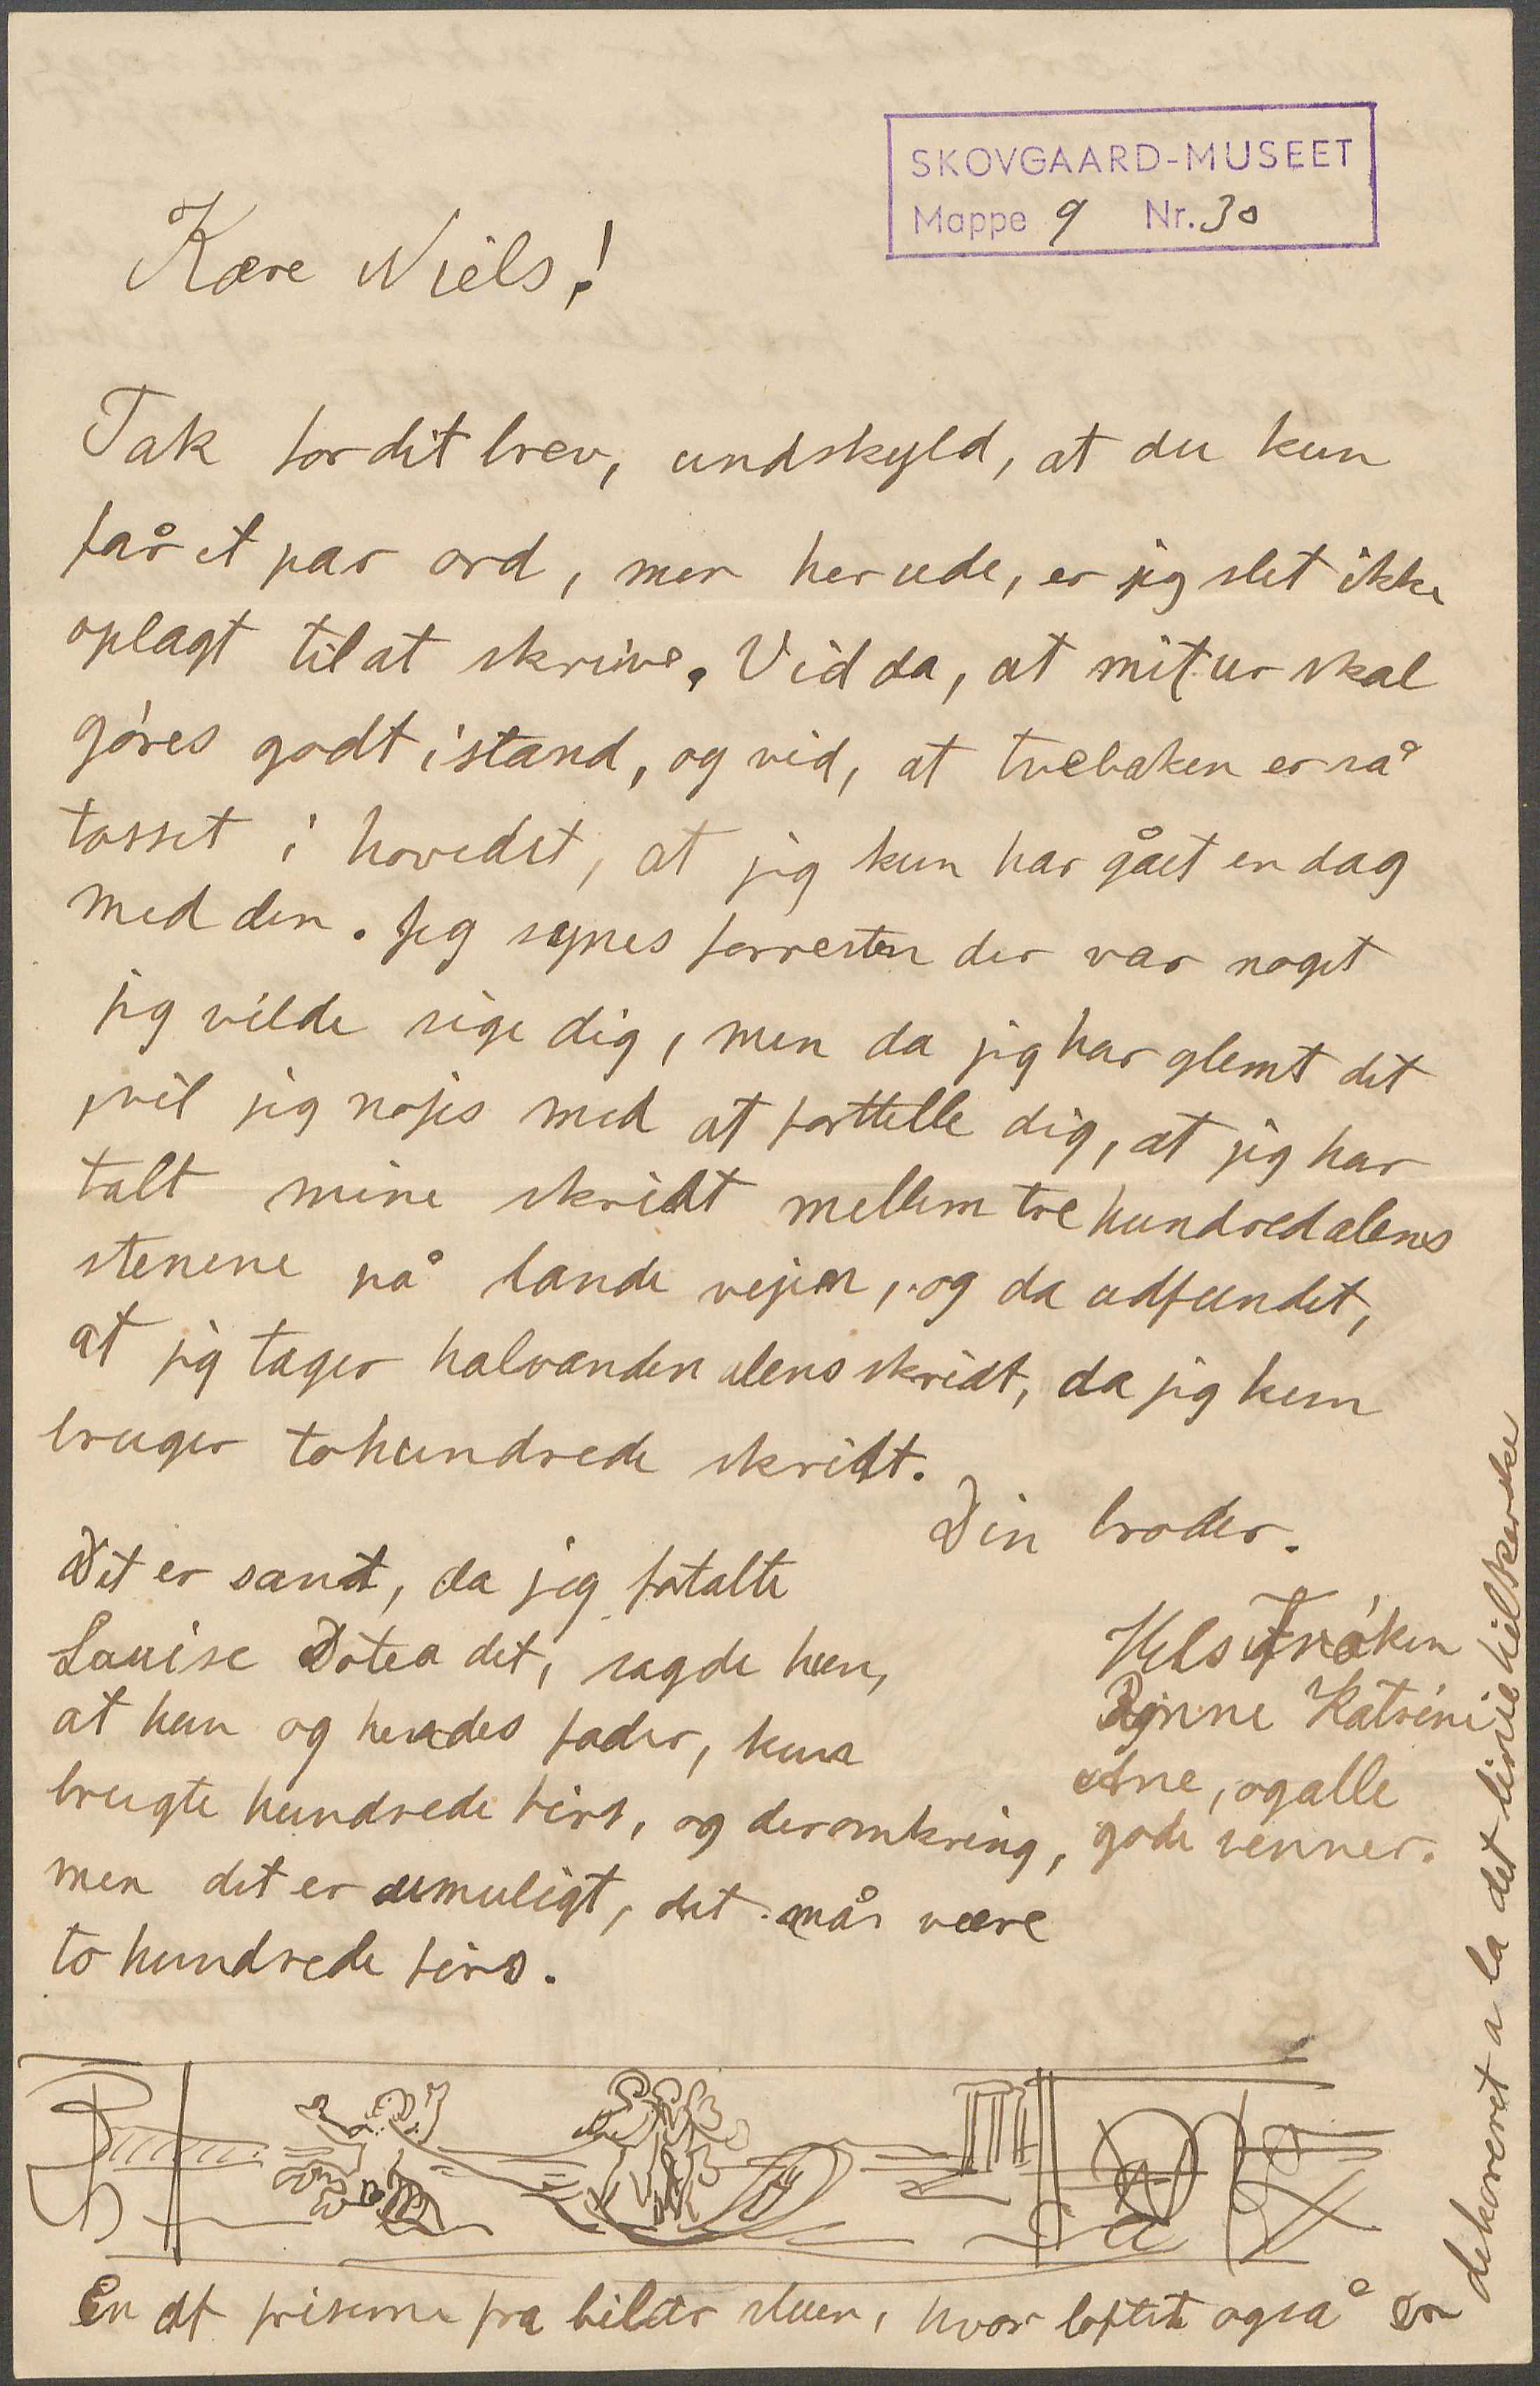 SKOVGAARD-MUSEET
Mappe 9 Nr. 30
Kære Niels!
Tak for dit brev, undskyld, at du kun
får et par ord, men herude, er jeg slet ikke
oplagt til at skrive. Vid da, at mit ur skal
gøres godt istand, og vid, at tvebaken er så
tosset i hovedet, at jeg kun har gået en dag
med den. Jeg synes forresten der var noget
jeg vilde sige dig, men da jeg har glemt det
, vil jeg nøjes med at forttelle dig, at jeg har
talt mine skridt mellem trehundredalens
stenene på lande vejen, og da udfundet,
at jeg tager halvanden alens skridt, da jeg kun
bruger tohundrede skridt.
Din broder.
Det er sandt, da jeg fotalte
Louise Dotea det, sagde hun,
at hun og hendes fader, kun
brugte hundrede firs, og deromkring,
men det er umuligt, det må være
to hundrede firs.
Hels Frøken
Bynne Katrine
Ane, og alle
gode venner.
En af friserne fra bilder stuen, hvor loftet også er
dekoreret a la det